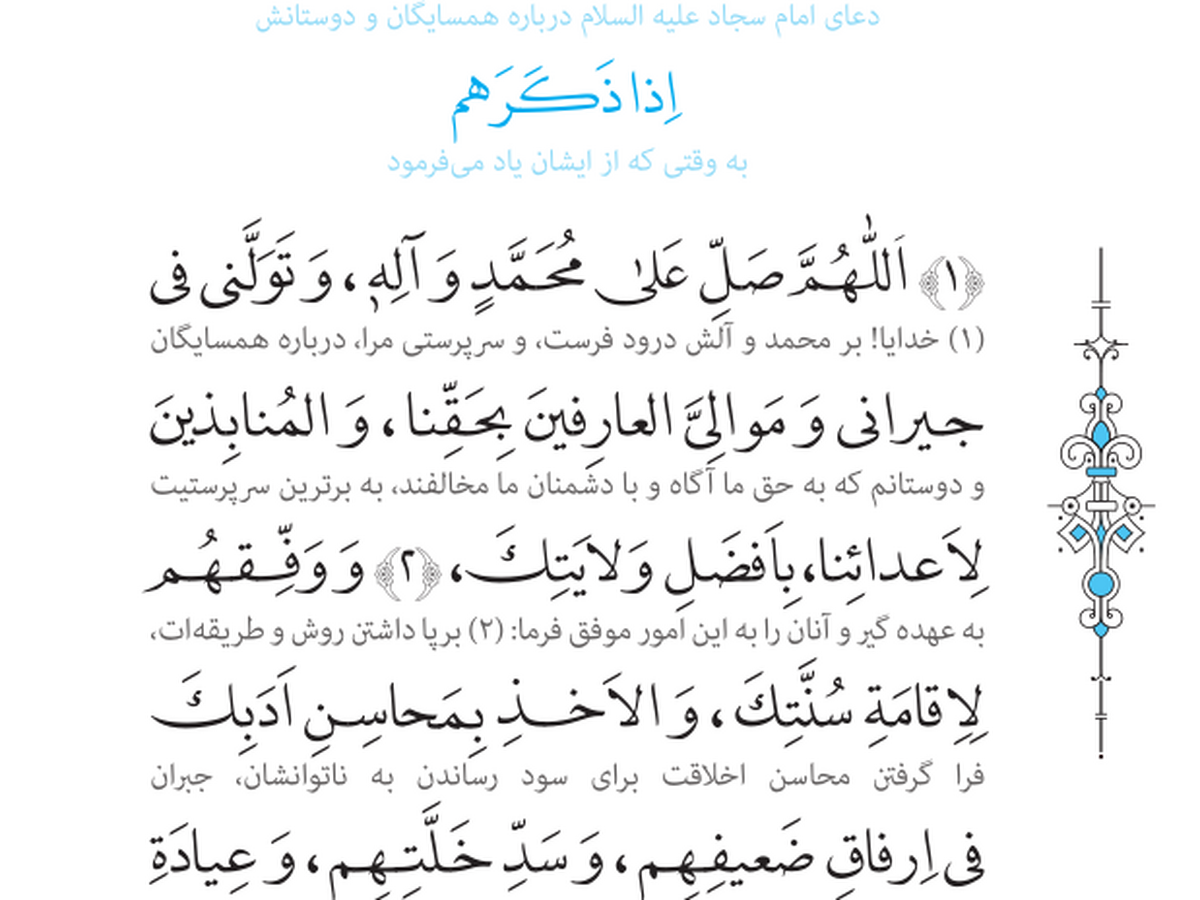 دعای امام سجاد علیه السلام درباره همسایگان و دوستانش
اِذا ذَکَرَهم
به وقتی که از ایشان یاد می‌فرمود
﴿۱﴾ اَللّٰهُمَّ صَلِّ عَلیٰ مُحَمَّدٍ وَ آلِهٖ، وَ تَوَلَّنی فی
(۱) خدایا! بر محمد و آلش درود فرست، و سرپرستی مرا، درباره همسایگان
جیرانی وَ مَوالِیَّ العارِفینَ بِحَقِّنا، وَ المُنابِذینَ
و دوستانم که به حق ما آگاه و با دشمنان ما مخالفند، به برترین سرپرستیت
لِاَعدائِنا، بِاَفضَلِ وَلایَتِکَ، ﴿۲﴾ وَ وَفِّقهُم
به عهده گیر و آنان را به این امور موفق فرما: (۲) برپا داشتن روش و طریقه‌ات،
لِاِقامَةِ سُنَّتِکَ، وَ الاَخذِ بِمَحاسِنِ اَدَبِکَ
فرا گرفتن محاسن اخلاقت برای سود رساندن به ناتوانشان، جبران
فی اِرفاقِ ضَعیفِهِم، وَ سَدِّ خَلَّتِهِم، وَ عِیادَةِ